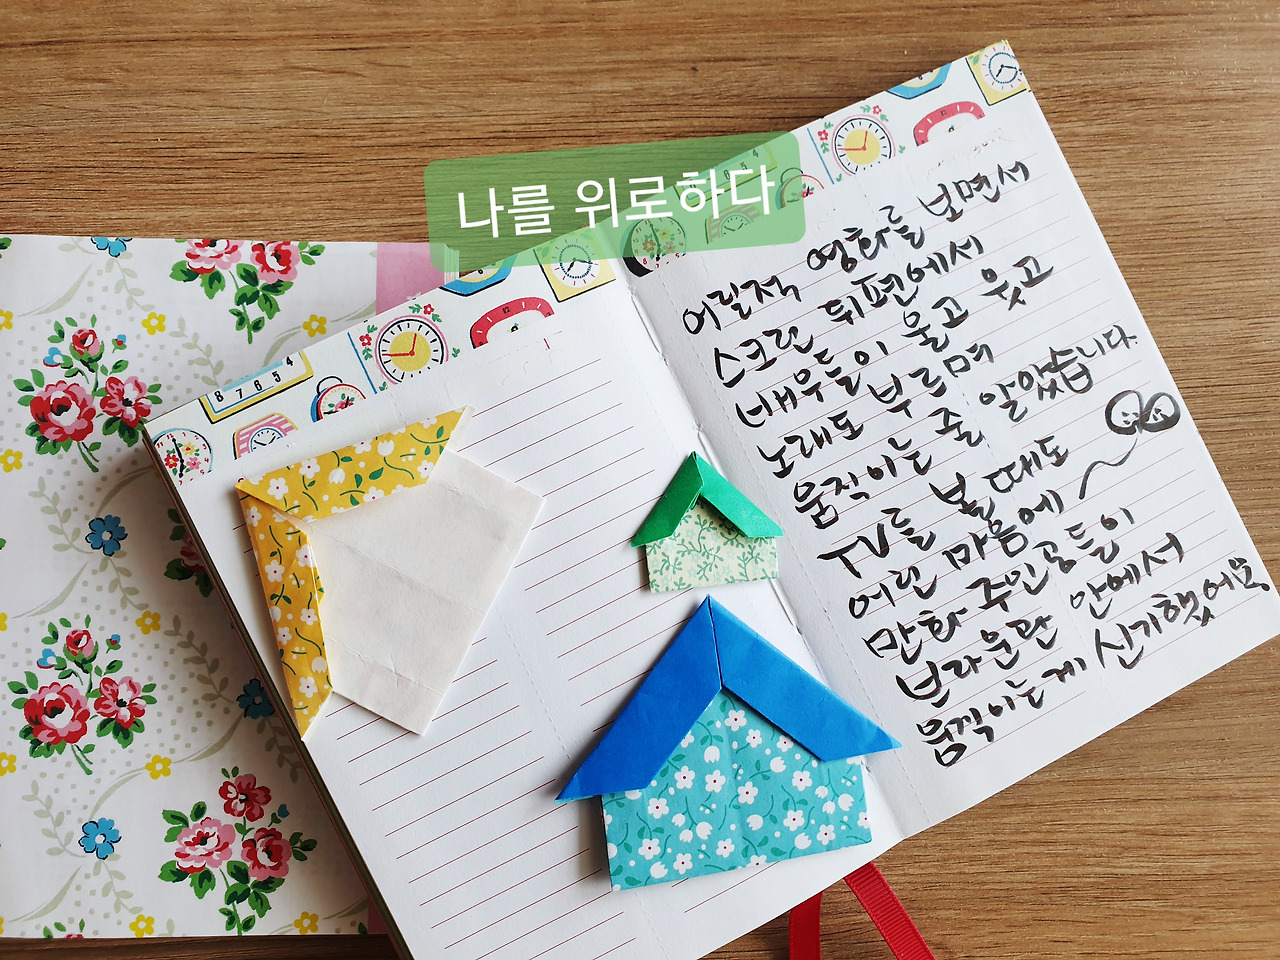 나를 위로하다
어릴적 영화를 보면서
스크린 뒤편에서
배우들이 울고 웃고
노래도 부르며
움직이는 줄 알았습니다.
TV를 볼 때도
어린 마음에
만화 주인공들이
브라운관 안에서
움직이는게 신기했어요
8 7 6 5 4